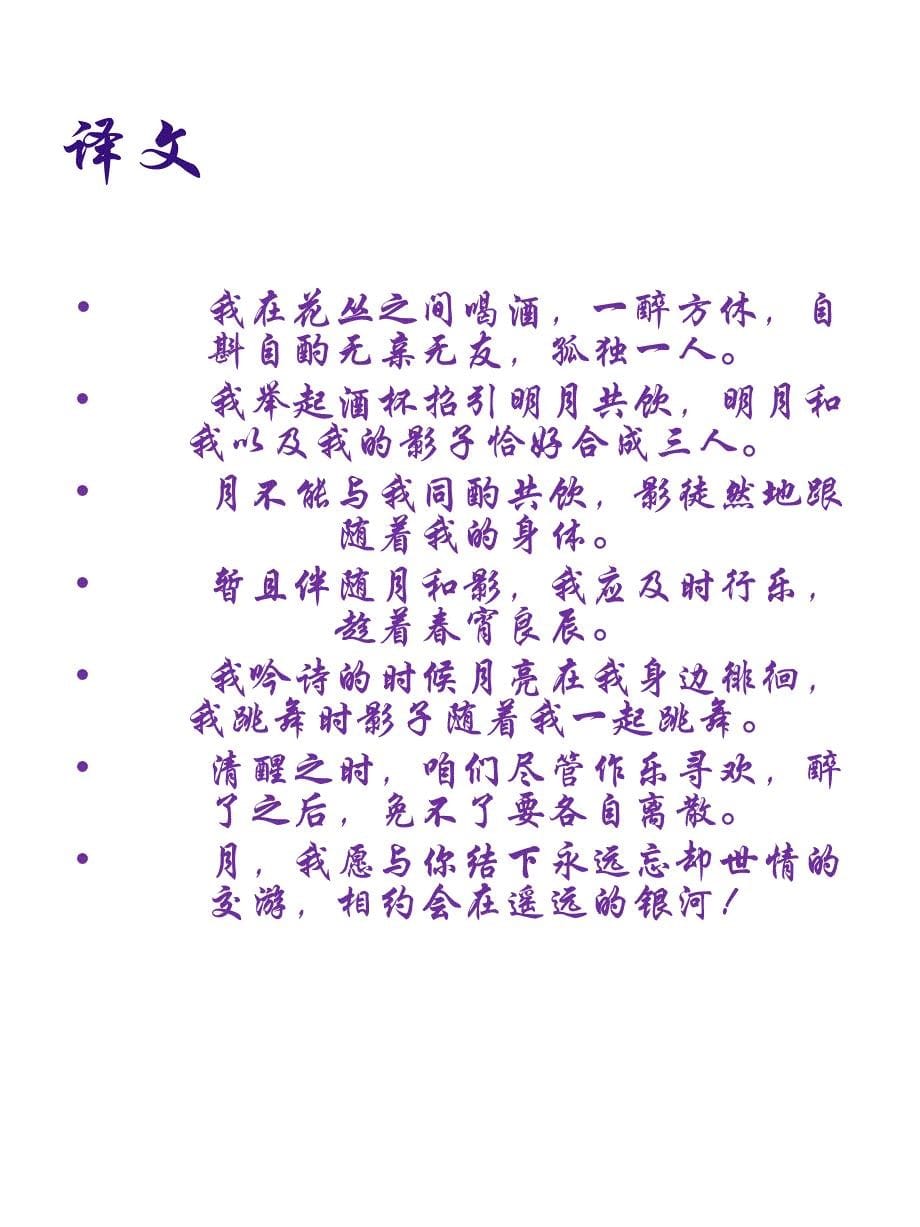 译文
• 我在花丛之间喝酒，一醉方休，自
斟自酌无亲无友，孤独一人。
• 我举起酒杯招引明月共饮，明月和
我以及我的影子恰好合成三人。
• 月不能与我同酌共饮，影徒然地跟
随着我的身体。
• 暂且伴随月和影，我应及时行乐，
趁着春宵良辰。
• 我吟诗的时候月亮在我身边徘徊，
我跳舞时影子随着我一起跳舞。
• 清醒之时，咱们尽管作乐寻欢，醉
了之后，免不了要各自离散。
• 月，我愿与你结下永远忘却世情的
交游，相约会在遥远的银河！